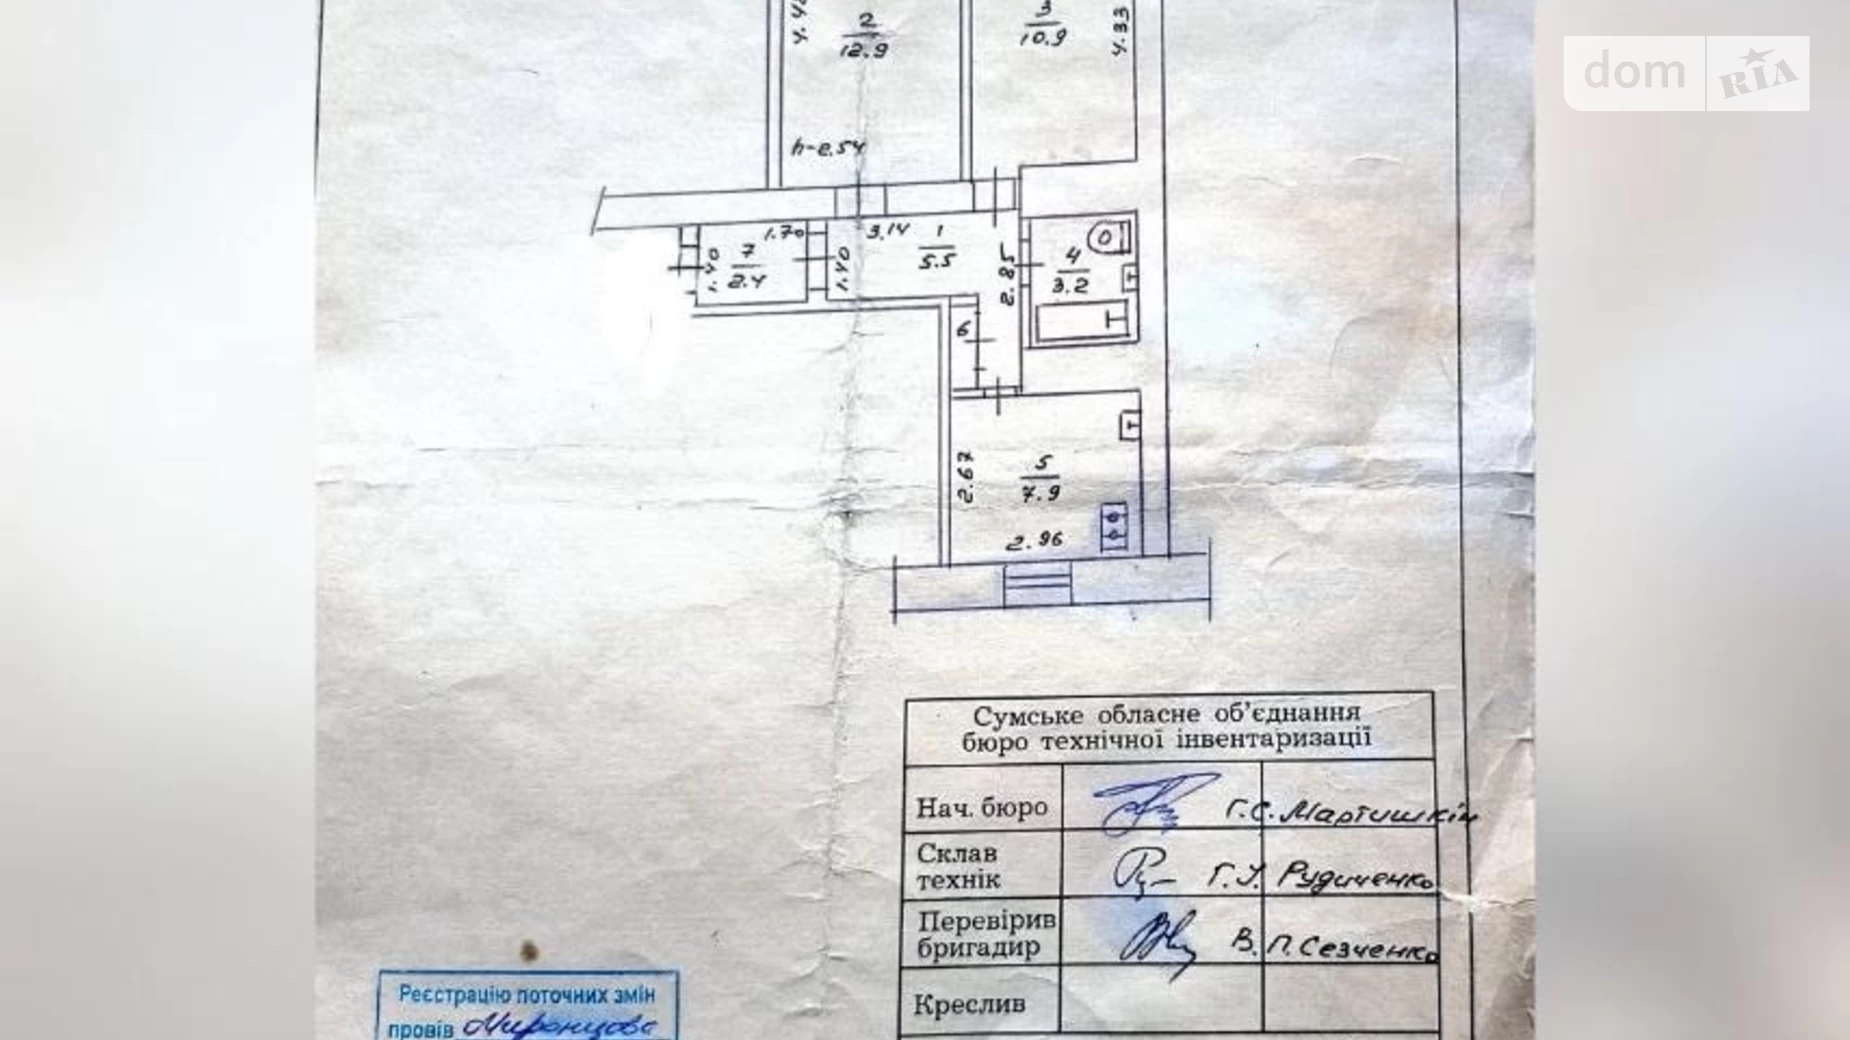 4.4
2
12.9
3
10.9
4.33
dom RIA
h-2.54
1.70
3.14
1
5.5
7
2.4
1.40
1.40
2.85
4
3.2
6
5
7.9
2.67
2.96
Сумське обласне об’єднання
бюро технічної інвентаризації
Нач. бюро Г.С. Мартишкін
Склав
технік Г.У. Рудиченко
Перевірив
бригадир В.П. Сезченко
Креслив
Реєстрацію поточних змін
провів Миронцова